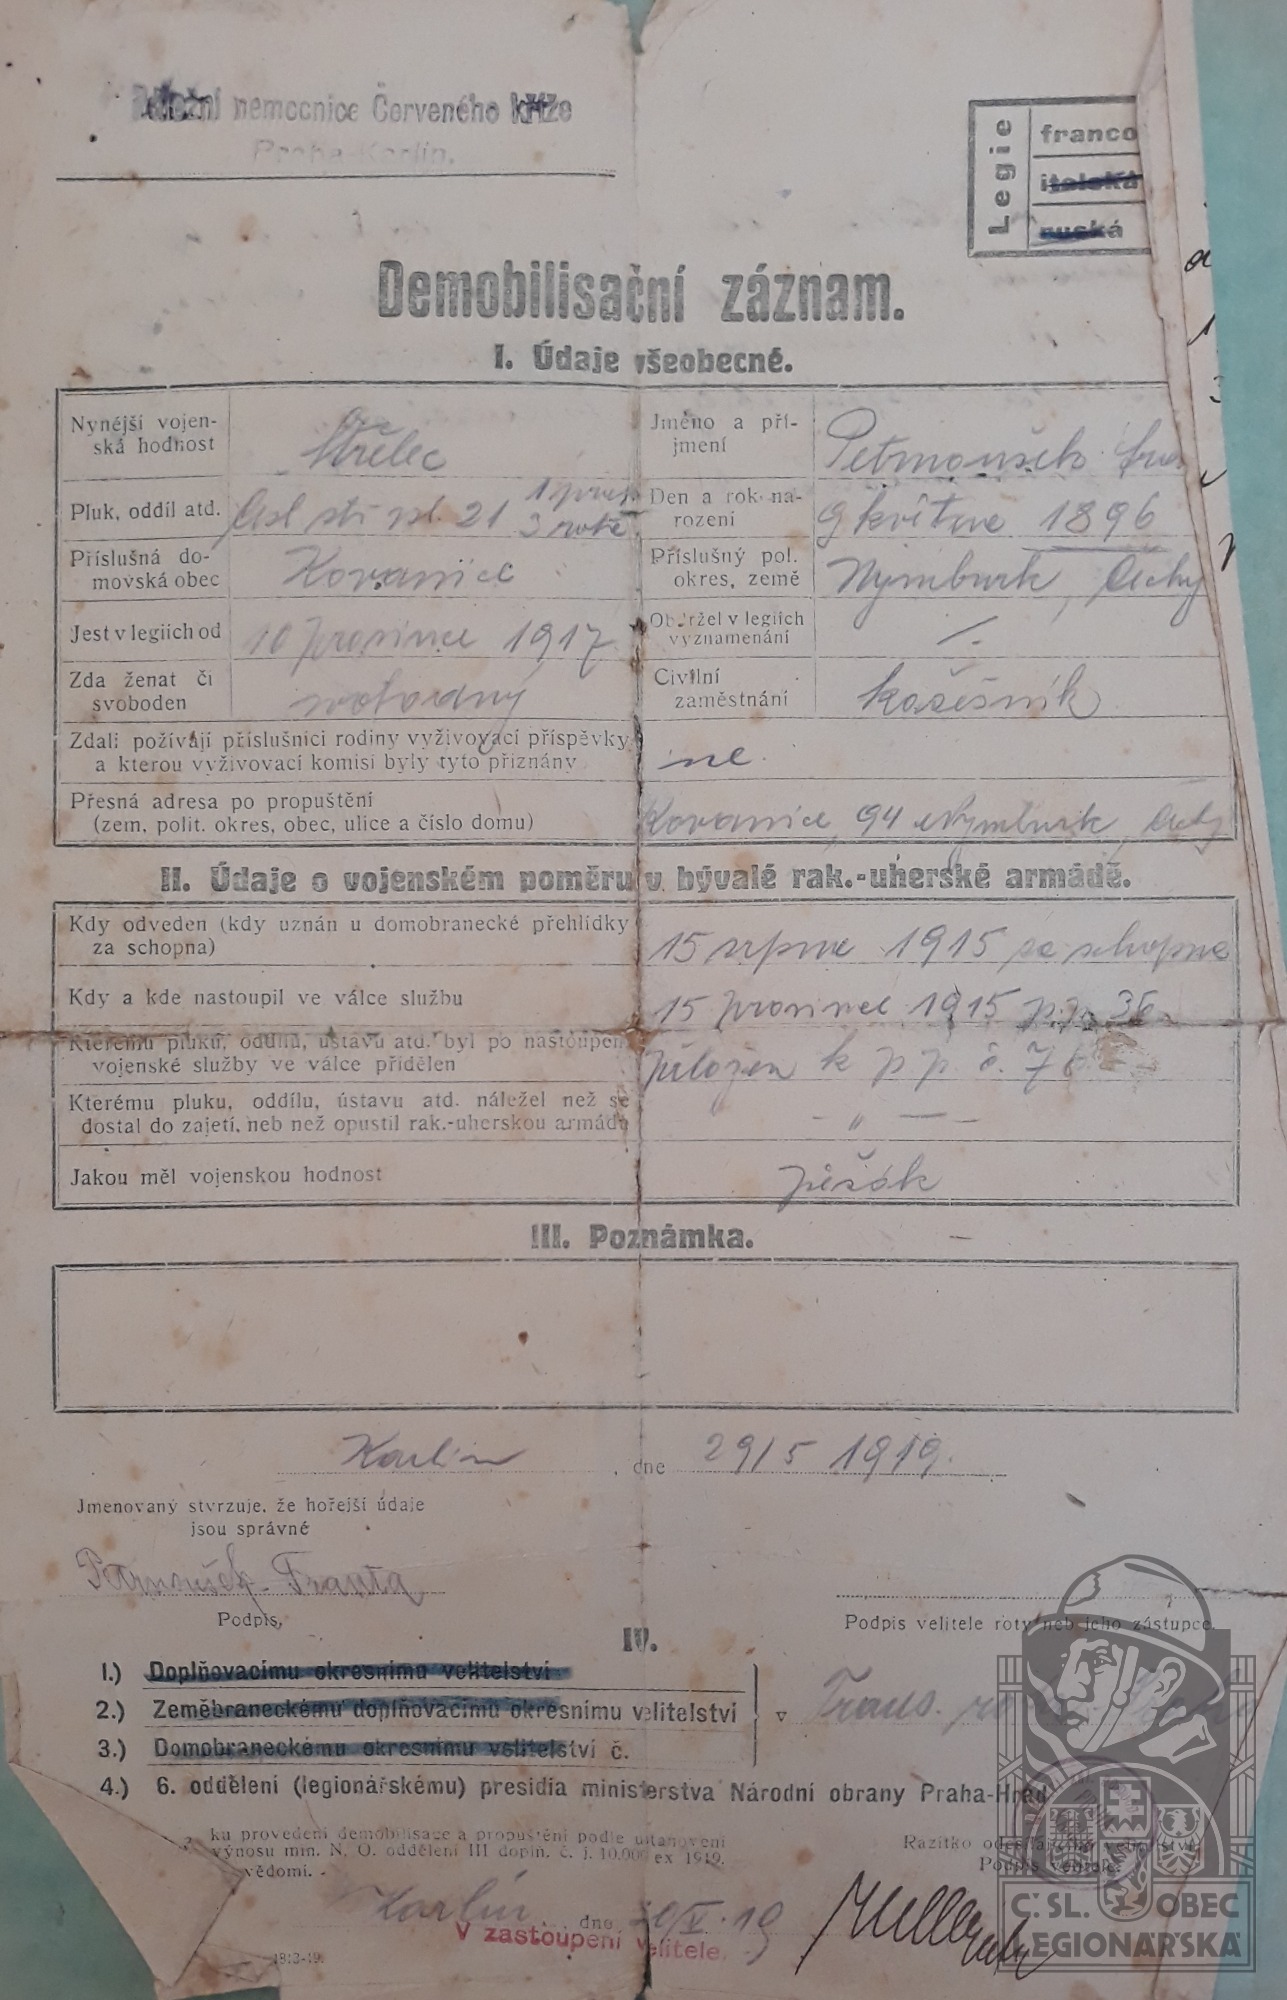 nemocnice Červeného kříže
Praha-Karlín.
Legie
franco
italská
ruská
Demobilisační záznam.
I. Údaje všeobecné.
Nynější vojen-
ská hodnost
Střelec
Jméno a pří-
jmení
Petrnoušek
Pluk, oddíl atd.
čsl stř pl. 21
3 rota
Den a rok na-
rození
9 května 1896
Příslušná do-
movská obec
Kovanice
Příslušný pol.
okres, země
Nymburk, Čechy
Jest v legiich od
10 prosince 1917
Obdržel v legiích
vyznamenání
Zda ženat či
svoboden
svobodný
Civilní
zaměstnání
kožešník
Zdali požívají příslušníci rodiny vyživovací příspěvky
a kterou vyživovací komisi byly tyto přiznány
ne
Přesná adresa po propuštění
(zem, polit. okres, obec, ulice a číslo domu)
Kovanice, 94 Nymburk, Čechy
II. Údaje o vojenském poměru v bývalé rak.-uherské armádě.
Kdy odveden (kdy uznán u domobranecké přehlídky
za schopna)
15 srpna 1915 za schopna
Kdy a kde nastoupil ve válce službu
15 prosince 1915 p.p. 36
Kterému pluku, oddílu, ústavu atd. byl po nastoupení
vojenské služby ve válce přidělen
přeložen k p.p. č.
Kterému pluku, oddílu, ústavu atd. náležel než se
dostal do zajetí, neb než opustil rak.-uherskou armádu
– „ —
Jakou měl vojenskou hodnost
pěšák
III. Poznámka.
Karlín, dne 29/5 1919.
Jmenovaný stvrzuje, že hořejší údaje
jsou správné
Petrnoušek Franta
Podpis.
Podpis velitele roty neb jeho zástupce.
IV.
1.) Doplňovacímu okresnímu velitelství
2.) Zeměbraneckému doplňovacímu okresnímu velitelství
v
3.) Domobraneckému okresnímu velitelství č.
4.) 6. oddělení (legionářskému) presidia ministerstva Národní obrany Praha-Hrad
ku provedení demobilisace a propuštění podle ustanovení
výnosu min. N. O. oddělení III doplň. č. j. 10.000 ex 1919.
vědomí.
Razítko odesílajícího velitelství
Podpis velitele
Karlín, dne 30/V. 19
V zastoupení velitele.
1813-19.
Č. SL. OBEC
LEGIONÁŘSKÁ